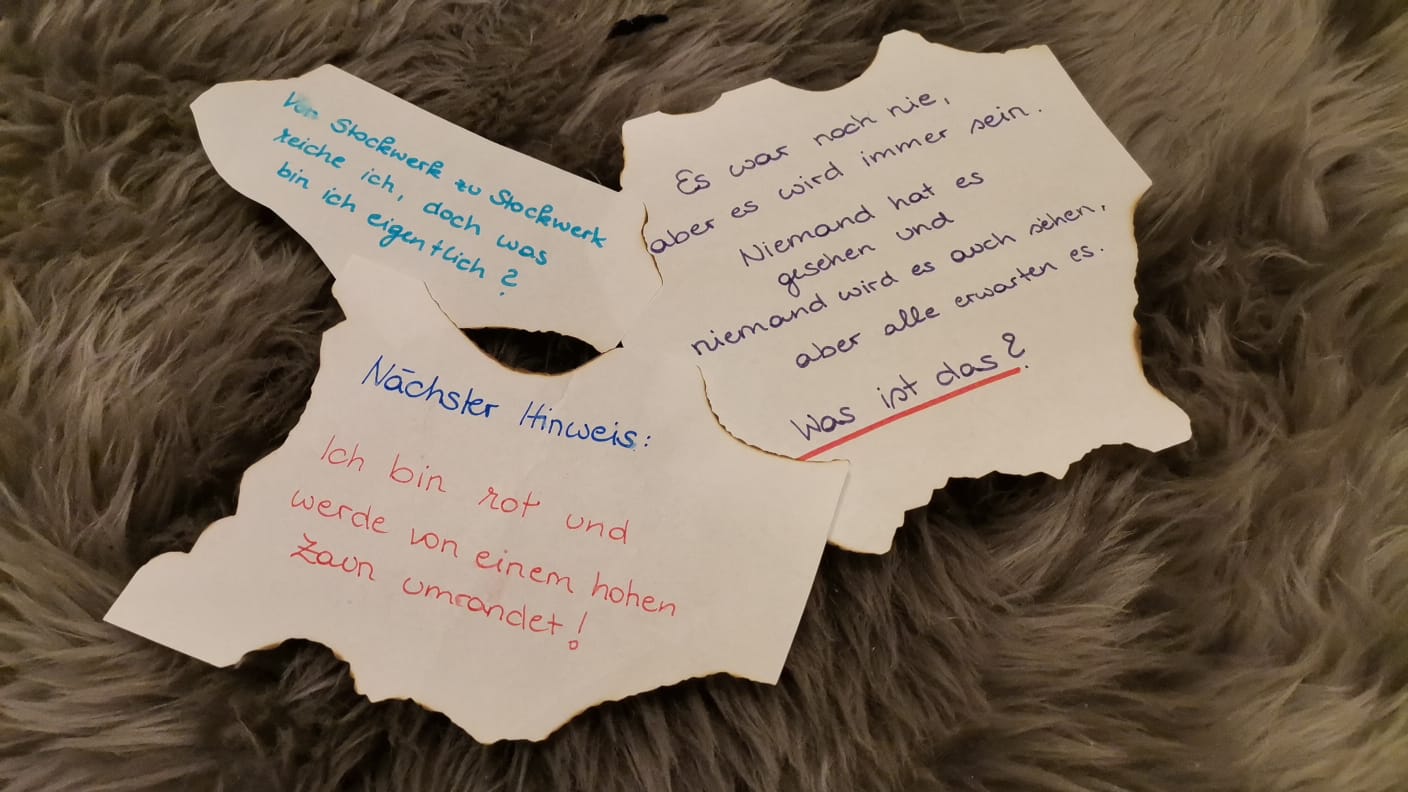 Von Stockwerk zu Stockwerk
reiche ich, doch was
bin ich eigentlich?
Es war noch nie,
aber es wird immer sein.
Niemand hat es
gesehen und
niemand wird es auch sehen,
aber alle erwarten es.
Was ist das?
Nächster Hinweis:
Ich bin rot und
werde von einem hohen
Zaun umrandet!